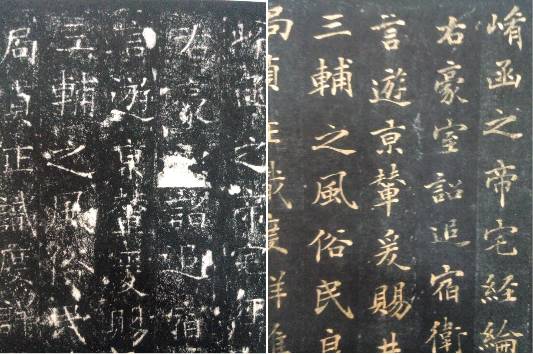 崤函之帝宅經綸
右豪室詔追宿衛
言遊亰輦爰賜
三輔之風俗民
局貞正識度詳
崤函之帝宅經
右豪詔追宿
言遊亰輦爰賜
三輔之風俗民
局貞正識度詳